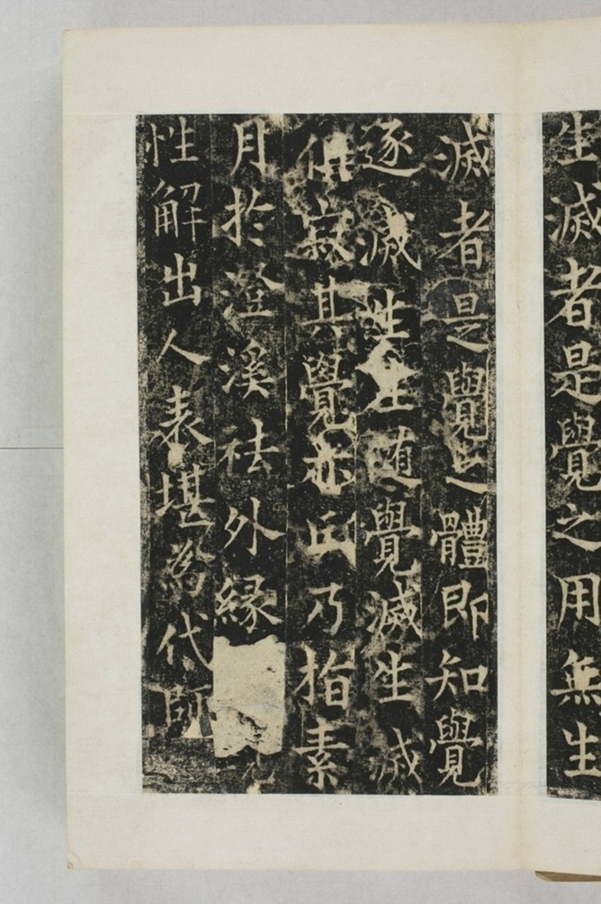 生滅者是覺之用無生
滅者是覺之體即知覺
逐滅性生随覺滅生滅
俱寂其覺亦亡乃指素
月於澄溪祛外緣
性解出人表堪為代師